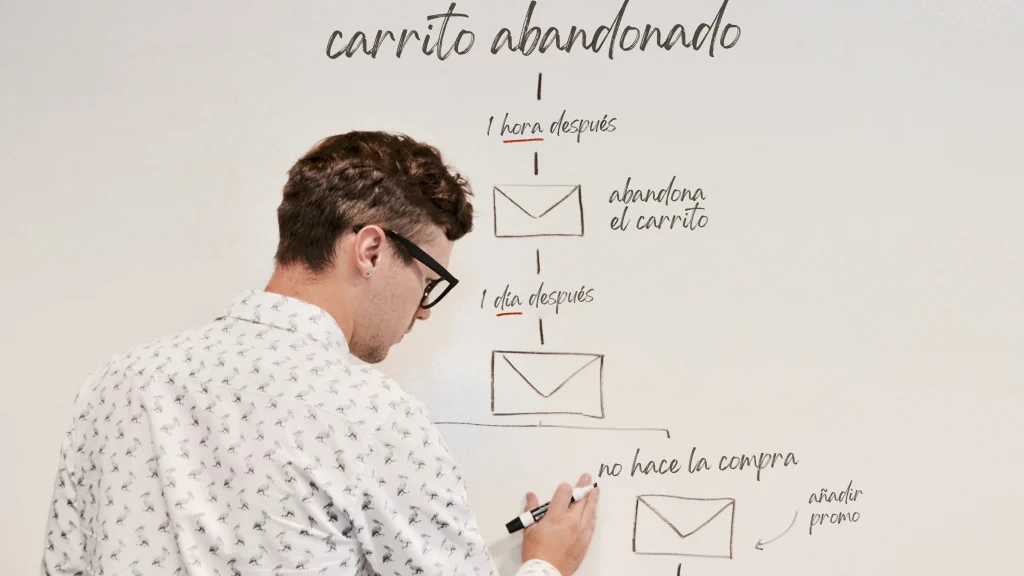 carrito abandonado
1 hora después
abandona
el carrito
1 día después
no hace la compra
añadir
promo